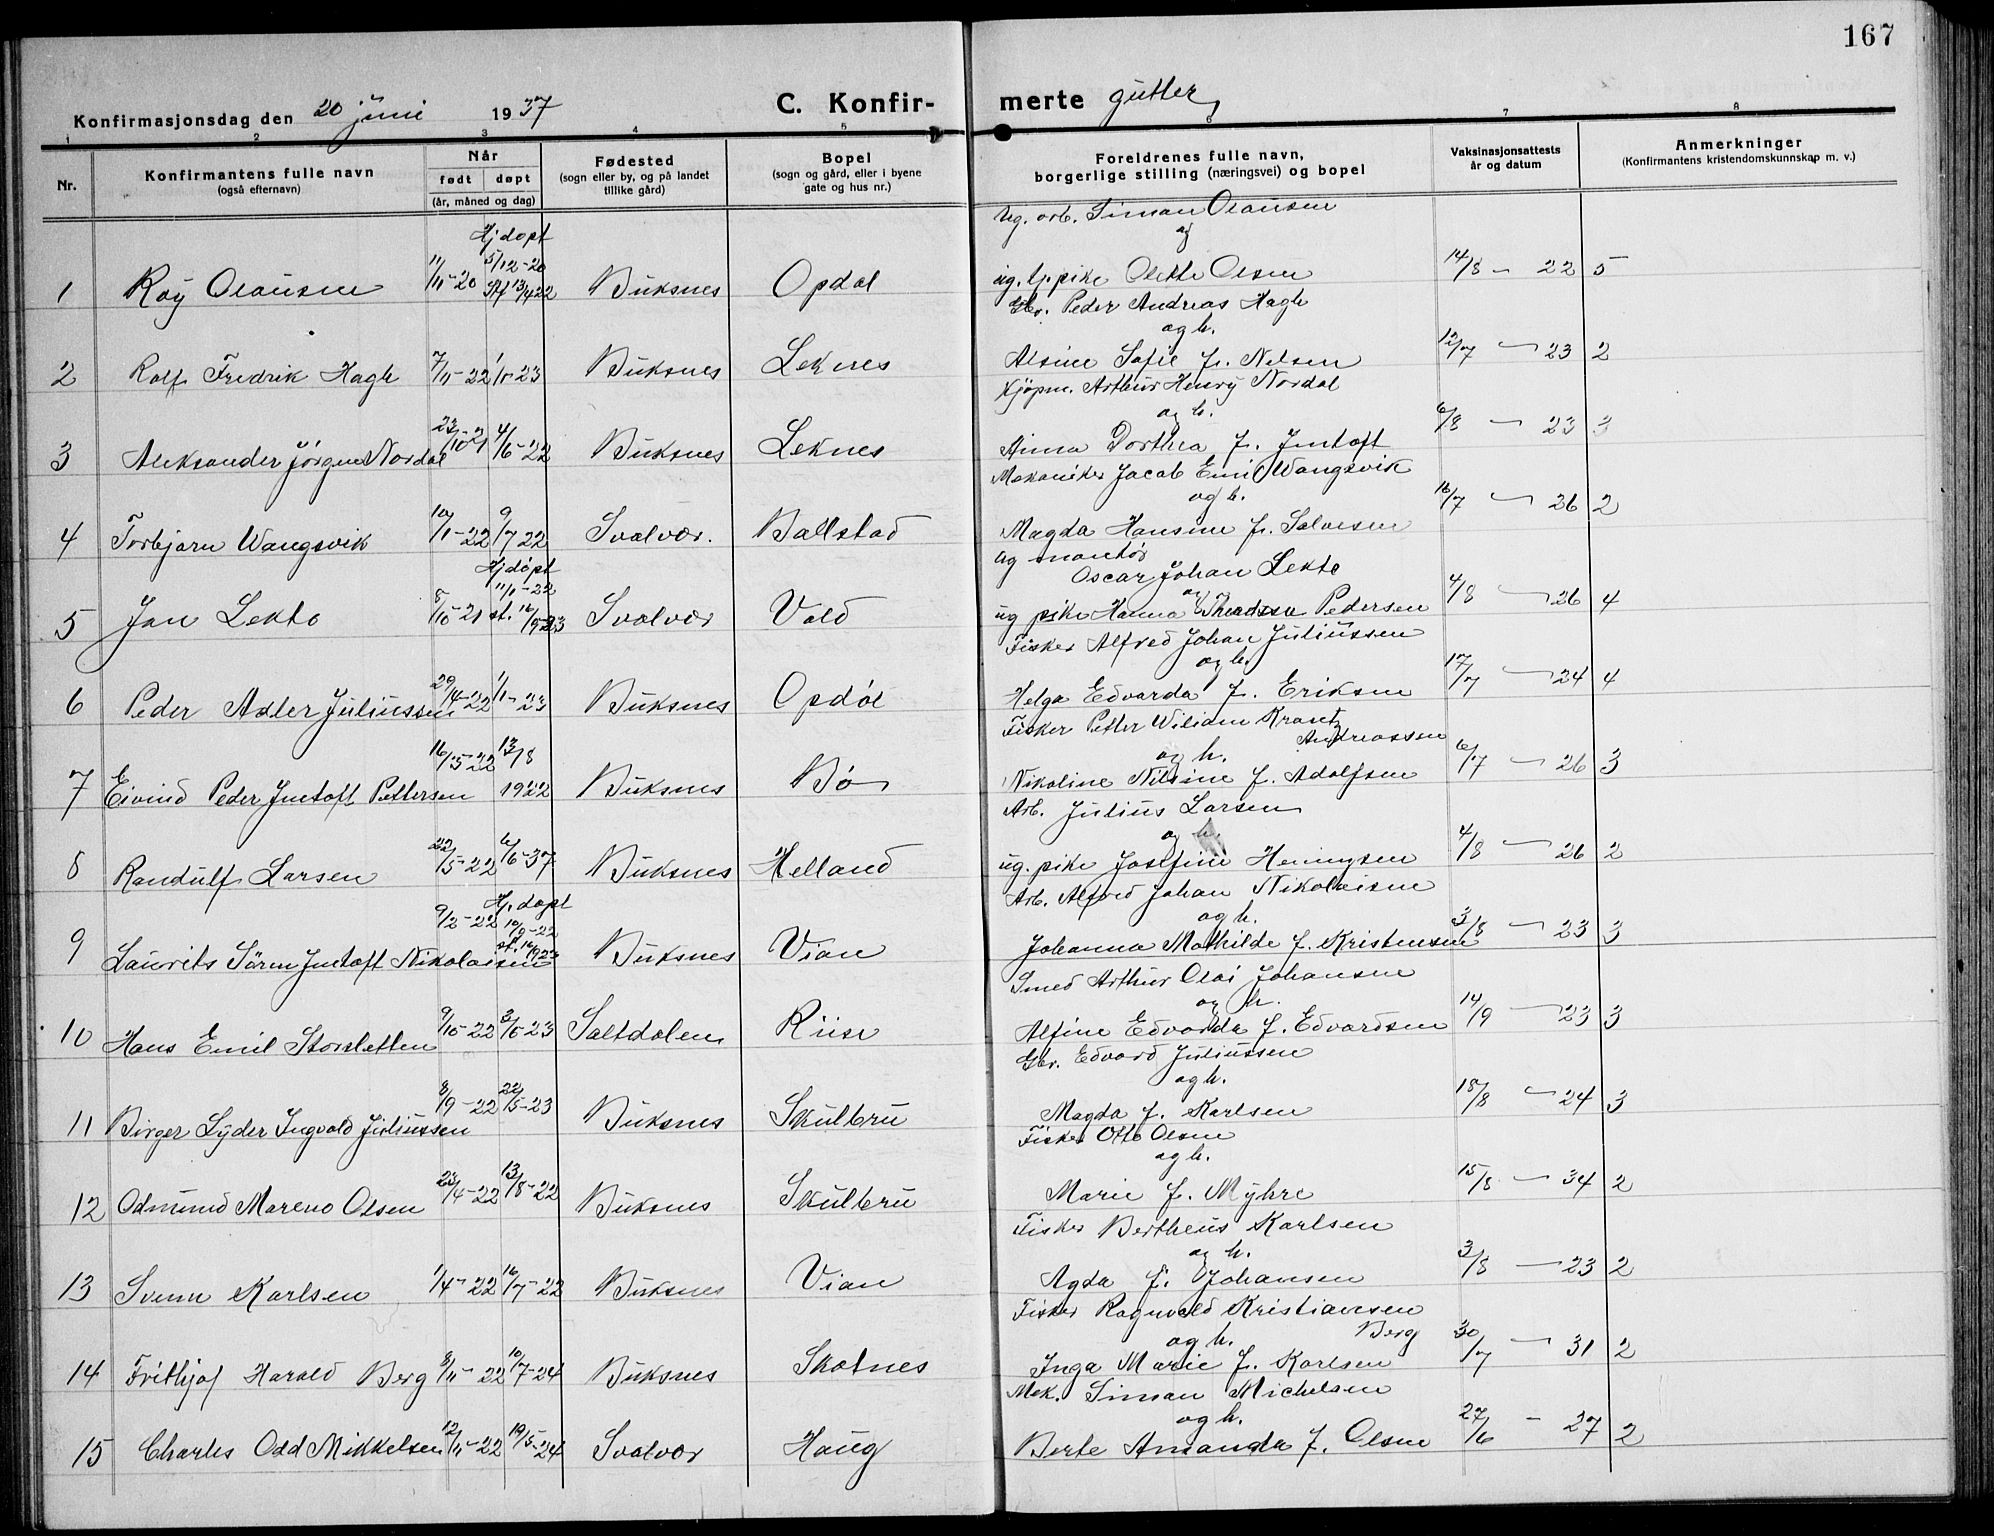 167
Konfirmasjonsdag den 20 juni 1937 C. Konfirmerte gutter
1 2 3 4 5 6 7 8
Nr.
Konfirmantens fulle navn
(også efternavn)
Når
født døpt
(år, måned og dag)
Fødested
(sogn eller by, og på landet
tillike gård)
Bopel
(sogn og gård, eller i byene
gate og hus nr.)
Foreldrenes fulle navn,
borgerlige stilling (næringsvei) og bopel
Vaksinasjonsattests
år og datum
Anmerkninger
(Konfirmantens kristendomskunnskap m. v.)
Ug. arb. Simon Olausen
Hj døpt
og
5/12-20
1 Roy Olausen 11/11-20 Stf 13/4 22 Buksnes Opdal ug. tj. pike Olette Olsen 14/8 - 22 5
Gbr. Peder Andreas Hagh
og h.
2 Rolf Fredrik Hagh 7/11-22 1/1-23 Buksnes Leknes Alsine Sofie f. Nilsen 12/7 - 23 2
Kjøpm. Arthur Henry Nordal
og h.
3 Aleksander Jörgen Nordal 23/10-21 4/6-22 Buksnes Leknes Anna Dorthea f. Jentoft 6/8 - 23 3
Mekaniker Jacob Emil Wangsvik
og h.
4 Torbjørn Wangsvik 10/1-22 9/7 22 Svolvær. Ballstad Magda Hansine f. Salvesen 16/7 - 26 2
ug montør
Oscar Johan Lekto
Hj døpt
11/1-22
og
5 Jan Lekto 8/10-21 st. 16/9 23 Svolvær Vold ug pike Hanna Pedersen 4/8 - 26 4
Fisker Alfred Johan Juliussen
og h.
6 Peder Adler Juliussen 29/4-22 1/1-23 Buksnes Opdøl Helga Edvarda f. Eriksen 17/7 - 24 4
Fisker Petter Wiliam Krantz
Andreassen
og h.
7 Eivind Peder Jentoft Pettersen 16/5-22 13/8 1922 Buksnes Bø Nikoline Nilsine f. Adolfsen 6/7 - 26 3
Arb. Julius Larsen
og
8 Randulf Larsen 22/5-22 6/6-37 Buksnes Helland ug. pike Josefine Heningsen 4/8 - 26 2
Arb. Alfred Johan Nikolaisen
Hj. døpt
10/9-22
og h.
9 Laurits Sören Jentoft Nikolaisen 9/2-22 st. 16/9 23 Buksnes Vian Johanna Mathilde f. Kristensen 3/8 - 23 3
Smed Arthur Olai Johansen
og h.
10 Hans Emil Storsletten 9/10-22 3/6-23 Saltdalen Riise Alfine Edvarda f. Edvardsen 14/9 - 23 3
Gbr. Edvard Juliussen
og h.
11 Birger Lyder Ingvald Juliussen 8/9-22 22/5-23 Buksnes Skulbru Magda f. Karlsen 18/8 - 24 3
Fisker Otto Olsen
og h.
12 Odmund Mareno Olsen 23/4-22 13/8-22 Buksnes Skulbru Marie f. Myhre 15/8 - 34 2
Fisker Bertheus Karlsen
og h.
13 Svenn Karlsen 1/4-22 16/7-22 Buksnes Vian Agda f. Johansen 3/8 - 23 2
Fisker Ragnvald Kristiansen
Berg
og h.
14 Frithjof Harald Berg 9/11-22 10/7-24 Buksnes Skotnes Inga Marie f. Karlsen 30/7 - 31 2
Mek. Simon Michelsen
og h.
15 Charles Odd Mikkelsen 12/11-22 19/5-24 Svolvær Haug Berte Amanda f. Olsen 27/6 - 27 2